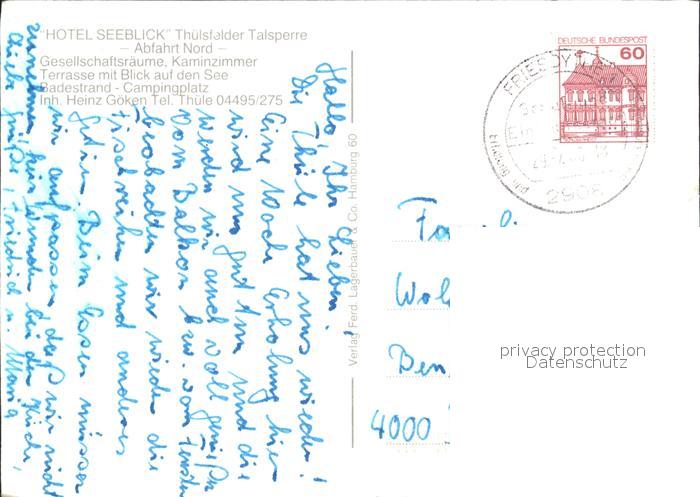 "HOTEL SEEBLICK" Thülsfelder Talsperre
— Abfahrt Nord —
Gesellschaftsräume, Kaminzimmer
Terrasse mit Blick auf den See
Badestrand - Campingplatz
Inh. Heinz Göken Tel. Thüle 04495/275
Hallo, Ihr Lieben!
Die Thüle hat uns wieder!
Eine Woch Erholung hier
wird uns gut tun und die
werden wir auch voll genießen
Vom Balkon bzw. vom Fenster
beobachten wir wieder die
Fischreiher und anderes
Getier. Beim Essen müssen
wir aufpassen, daß wir nicht
zunehmen, hier
Friedrich u. Maria
Verlag Ferd. Lagerbauer & Co. Hamburg 60
DEUTSCHE BUNDESPOST
60
FRIESOYTHE
Erholung und
2908
Fa
Wol
Ben
4000
privacy protection
Datenschutz